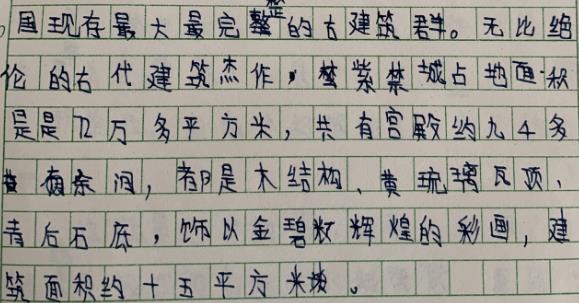 国现存最大最完整的古建筑群。无比绝
伦的古代建筑杰作，紫禁城占地面积
是是72万多平方米，共有宫殿约九千多
间，都是木结构、黄琉璃瓦顶、
青石底，饰以金碧辉煌的彩画，建
筑面积约十五平方米。